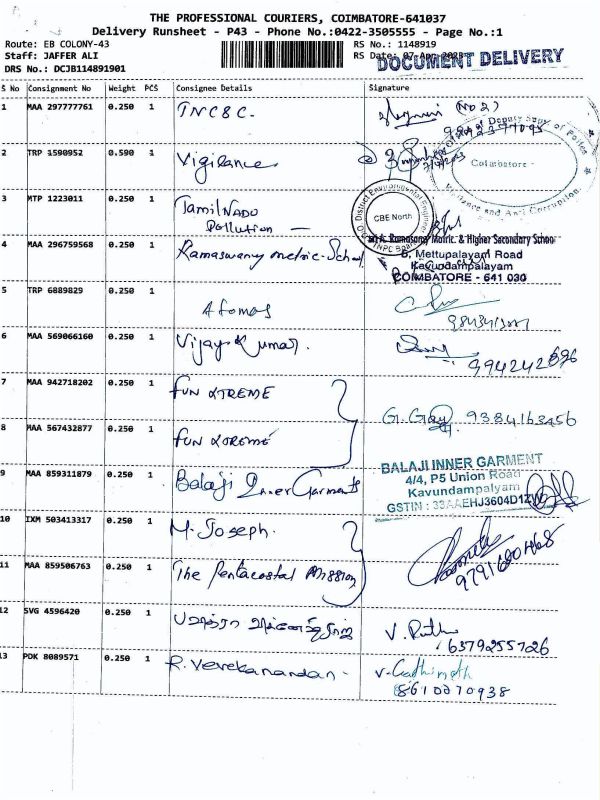 THE PROFESSIONAL COURIERS, COIMBATORE-641037
Delivery Runsheet - P43 - Phone No.:0422-3505555 - Page No.:1
Route: EB COLONY-43
Staff: JAFFER ALI
DRS No.: DCJB114891901
RS No.: 1148919
RS Date: 07-Apr-2023
DOCUMENT DELIVERY
S No Consignment No Weight PCS Consignee Details Signature
1 MAA 297777761 0.250 1 TNCSC.
(NO 2)
2 TRP 1590952 0.590 1 Vigilance
Deputy Supt of Police
Coimbatore -
Vigilance and Anti Corruption
3 MTP 1223011 0.250 1 TamilNADO
Pollution —
District Environmental Engineer
CBE North
TNPC Board
4 MAA 296759568 0.250 1 Ramaswamy metric-School
Ramasamy Matric. & Higher Secondary School
Mettupalayam Road
Kavundampalayam
COIMBATORE - 641 030
5 TRP 6889829 0.250 1 Atomos
6 MAA 569066160 0.250 1 Vijay Kumar.
7 MAA 942718202 0.250 1 FUN XTREME
G. 9384163456
8 MAA 567432877 0.250 1 FUN XTREME
9 MAA 859311879 0.250 1 Balaji Inner Garments
BALAJI INNER GARMENT
4/4, P5 Union Road
Kavundampalyam
GSTIN : 33AAEHJ3604D1ZW
10 IXM 503413317 0.250 1 M. Joseph.
11 MAA 859506763 0.250 1 The Pentacostal Mission
12 SVG 4596420 0.250 1
V.
6379255726
13 PDK 8089571 0.250 1 R. Vevekanandan.
V.
8610270938